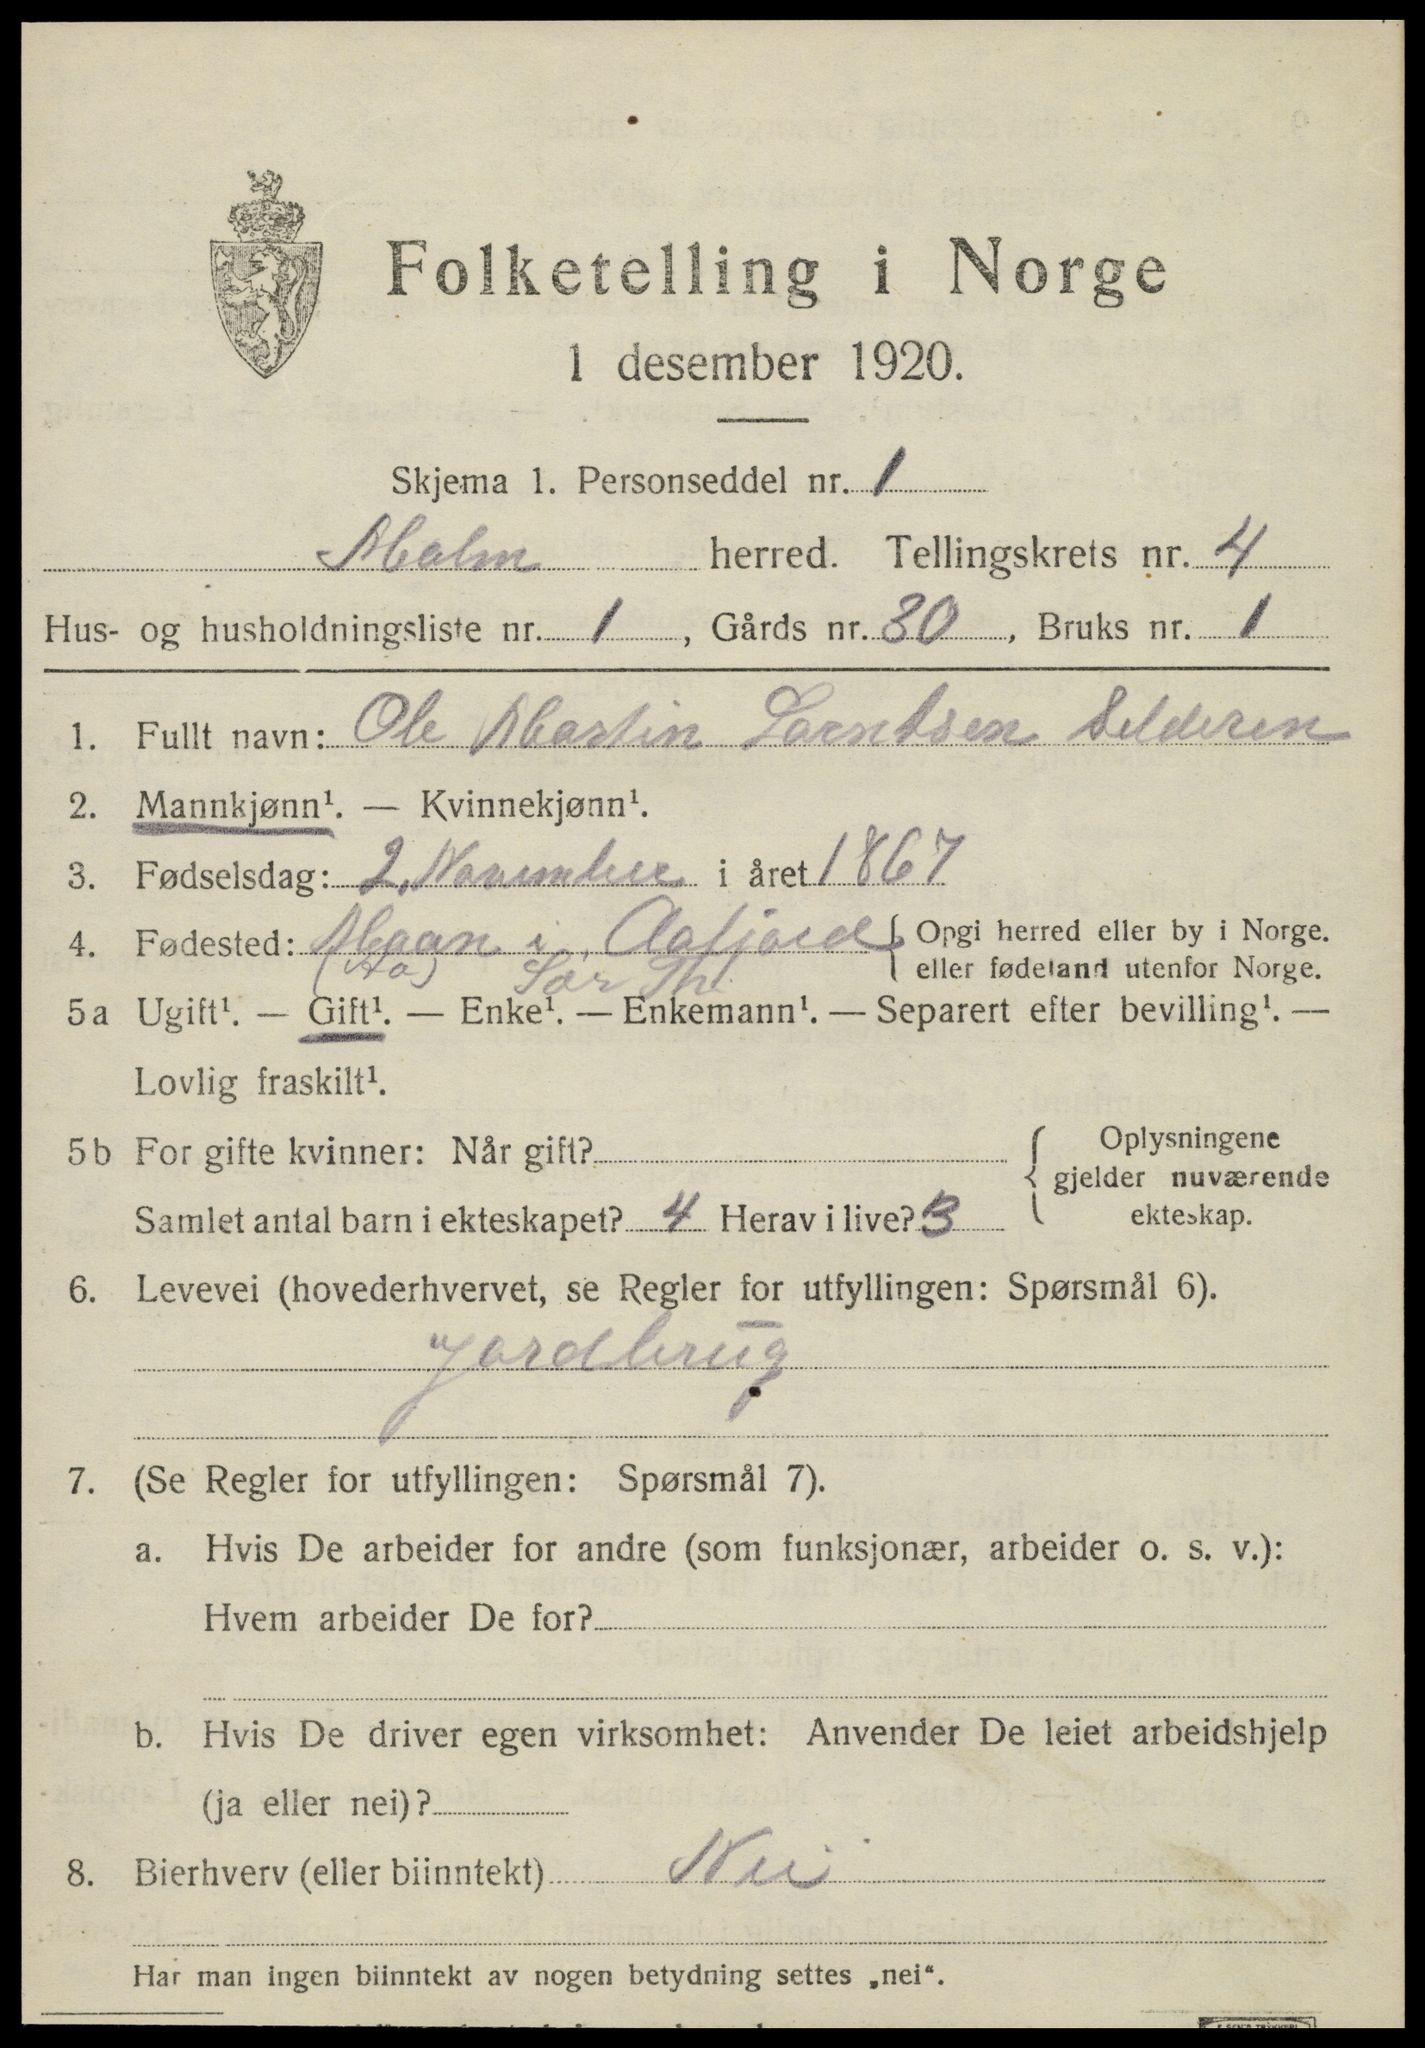 Folketelling i Norge
1 desember 1920.
Skjema 1. Personseddel nr. 1
Malm herred. Tellingskrets nr. 4
Hus- og husholdningsliste nr. 1, Gårds nr. 30, Bruks nr. 1
1. Fullt navn: Ole Martin Larntsen Selderen
2. Mannkjønn¹. — Kvinnekjønn¹.
3. Fødselsdag: 2. November i året 1867
4. Fødested: Maan i Aafjord { Opgi herred eller by i Norge.
(Aa) Sør Th. eller fødeland utenfor Norge.
5a Ugift¹. — Gift¹. — Enke¹. — Enkemann¹. — Separert efter bevilling¹. —
Lovlig fraskilt¹.
5b For gifte kvinner: Når gift? { Oplysningene
gjelder nuværende
Samlet antal barn i ekteskapet? 4 Herav i live? 3 ekteskap.
6. Levevei (hovederhvervet, se Regler for utfyllingen: Spørsmål 6).
Jordbrug
7. (Se Regler for utfyllingen: Spørsmål 7).
a. Hvis De arbeider for andre (som funksjonær, arbeider o. s. v.):
Hvem arbeider De for?
b. Hvis De driver egen virksomhet: Anvender De leiet arbeidshjelp
(ja eller nei)?
8. Bierhverv (eller biinntekt) Nei
Har man ingen biinntekt av nogen betydning settes „nei“.